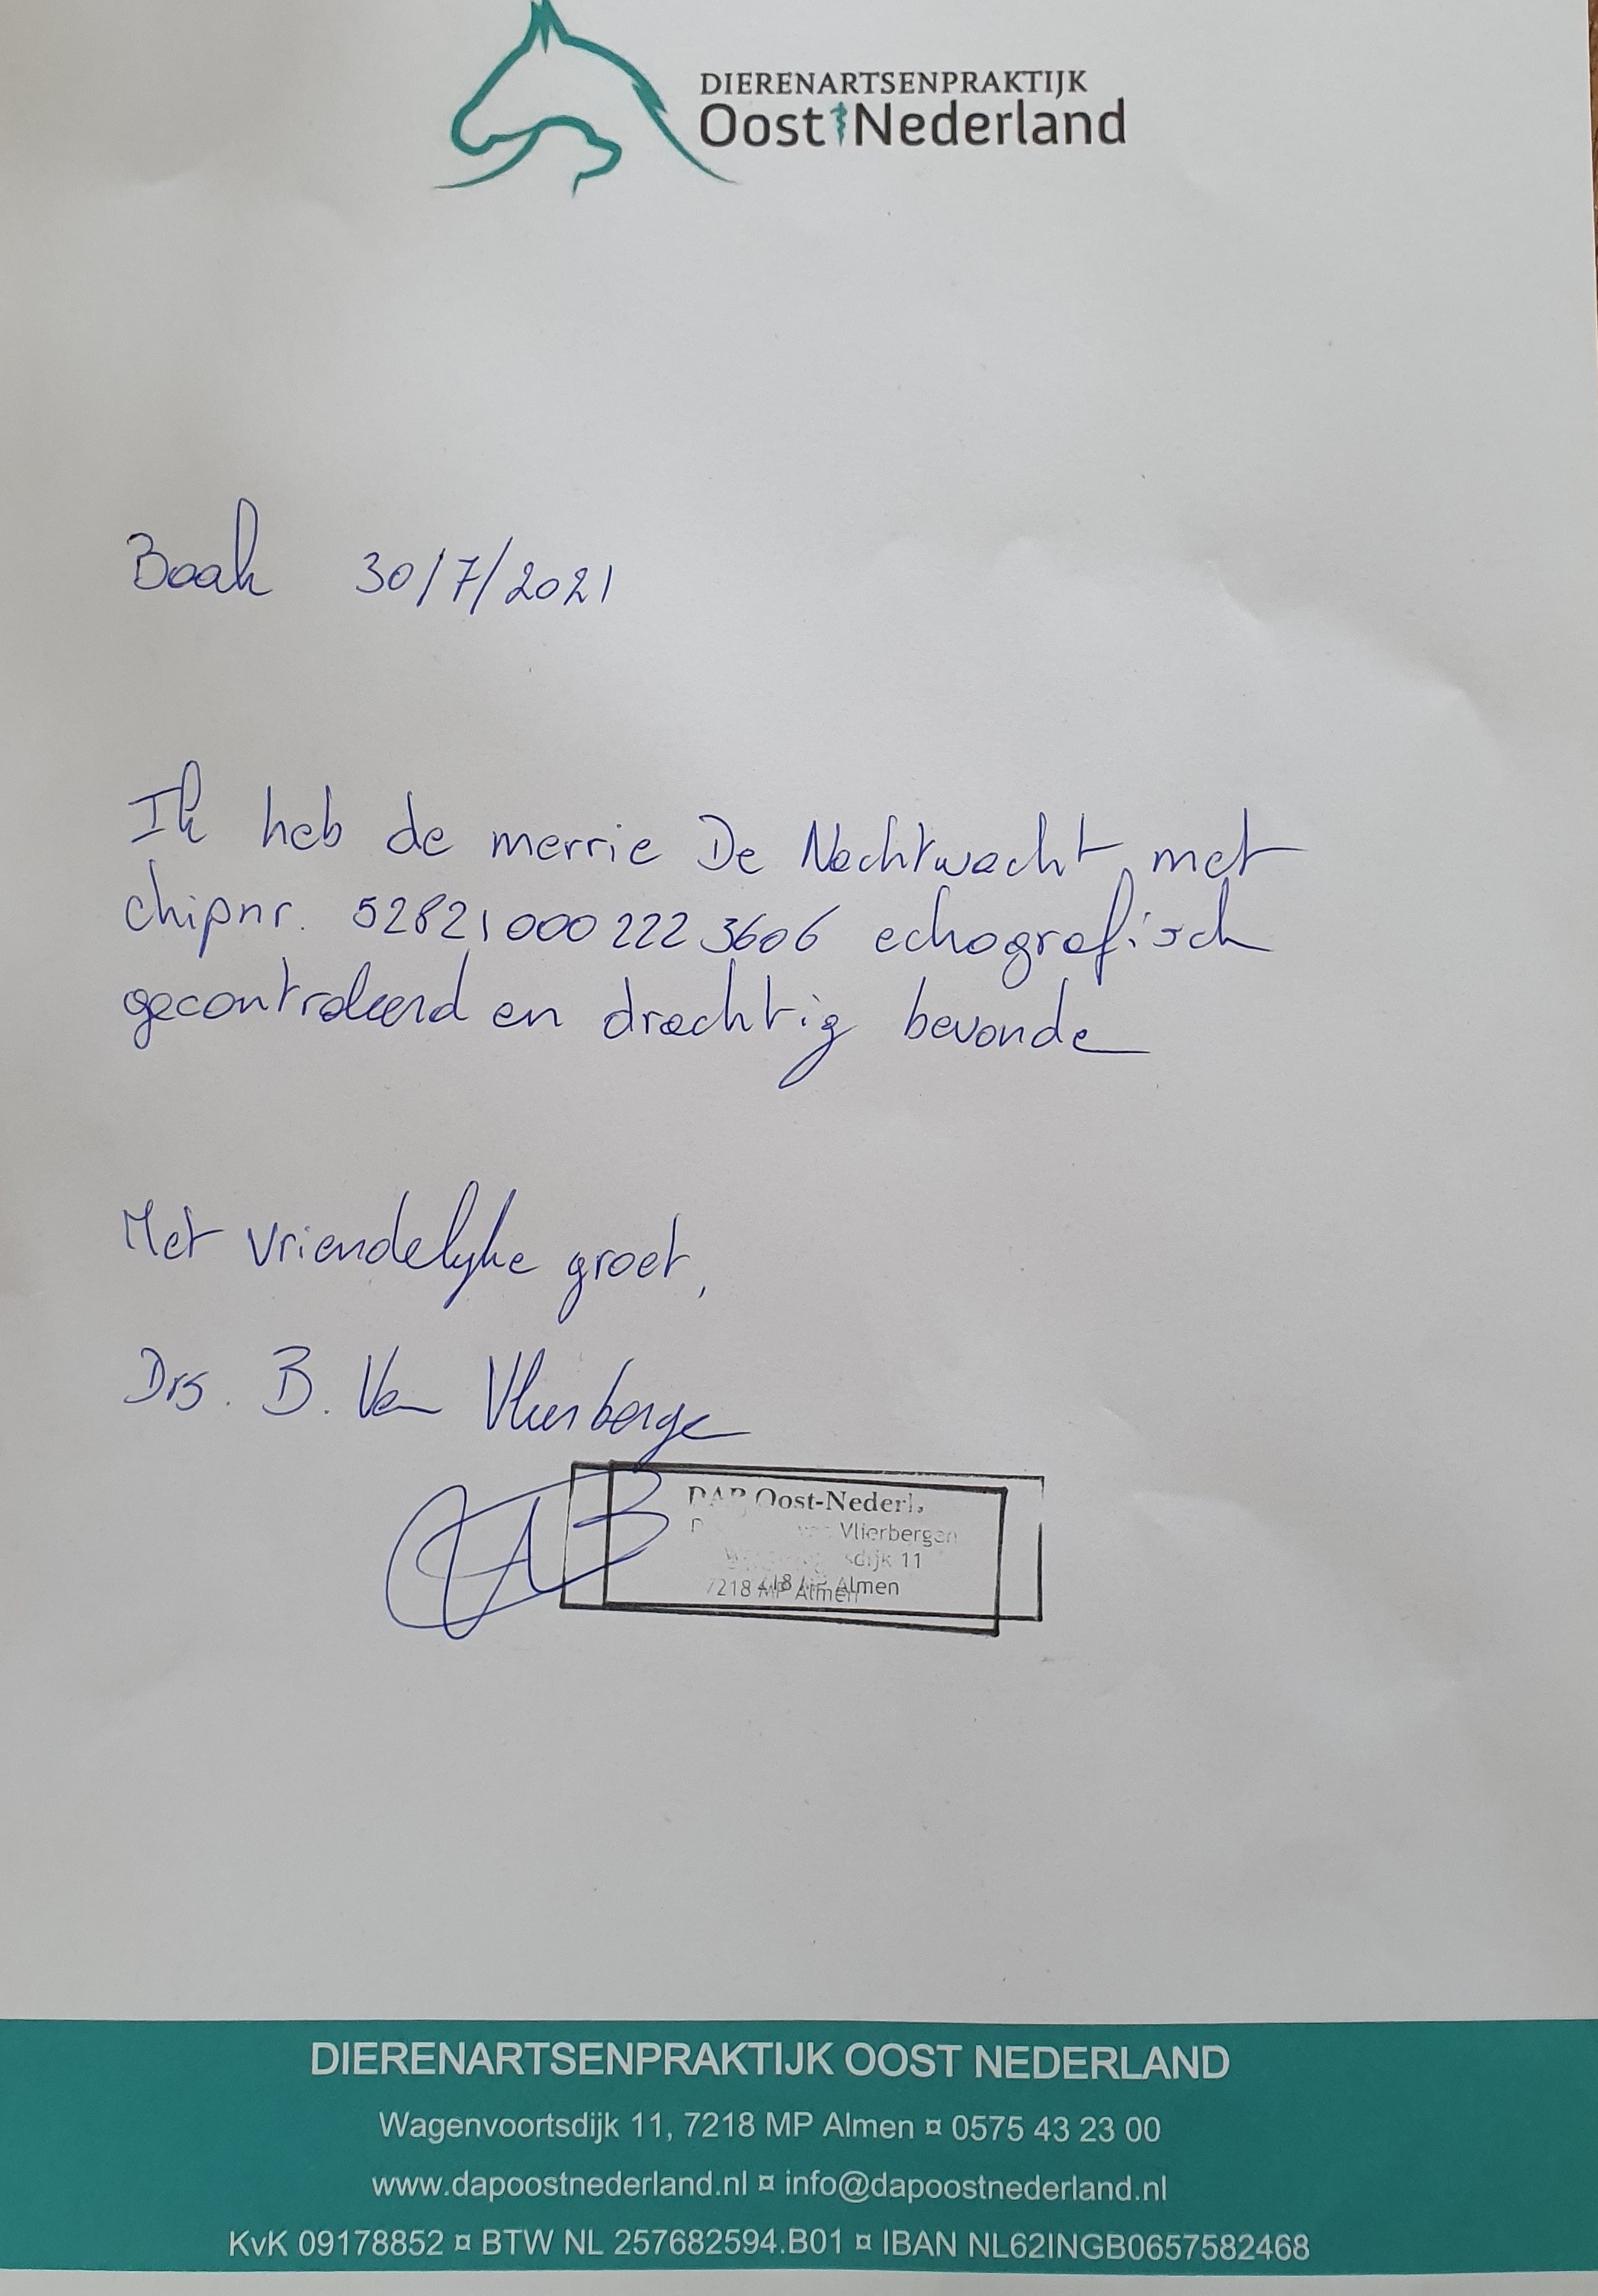 DIERENARTSENPRAKTIJK
Oost Nederland
Baak 30/7/2021
Ik heb de merrie De Nachtwacht met
chipnr. 528210002223606 echografisch
gecontroleerd en drachtig bevonde
Met vriendelijke groet,
Drs. B. Van Vlierberge
DAP Oost-Nederl
Vlierbergen
sdijk 11
7218 MP Almen
DIERENARTSENPRAKTIJK OOST NEDERLAND
Wagenvoortsdijk 11, 7218 MP Almen ¤ 0575 43 23 00
www.dapoostnederland.nl ¤ info@dapoostnederland.nl
KvK 09178852 ¤ BTW NL 257682594.B01 ¤ IBAN NL62INGB0657582468